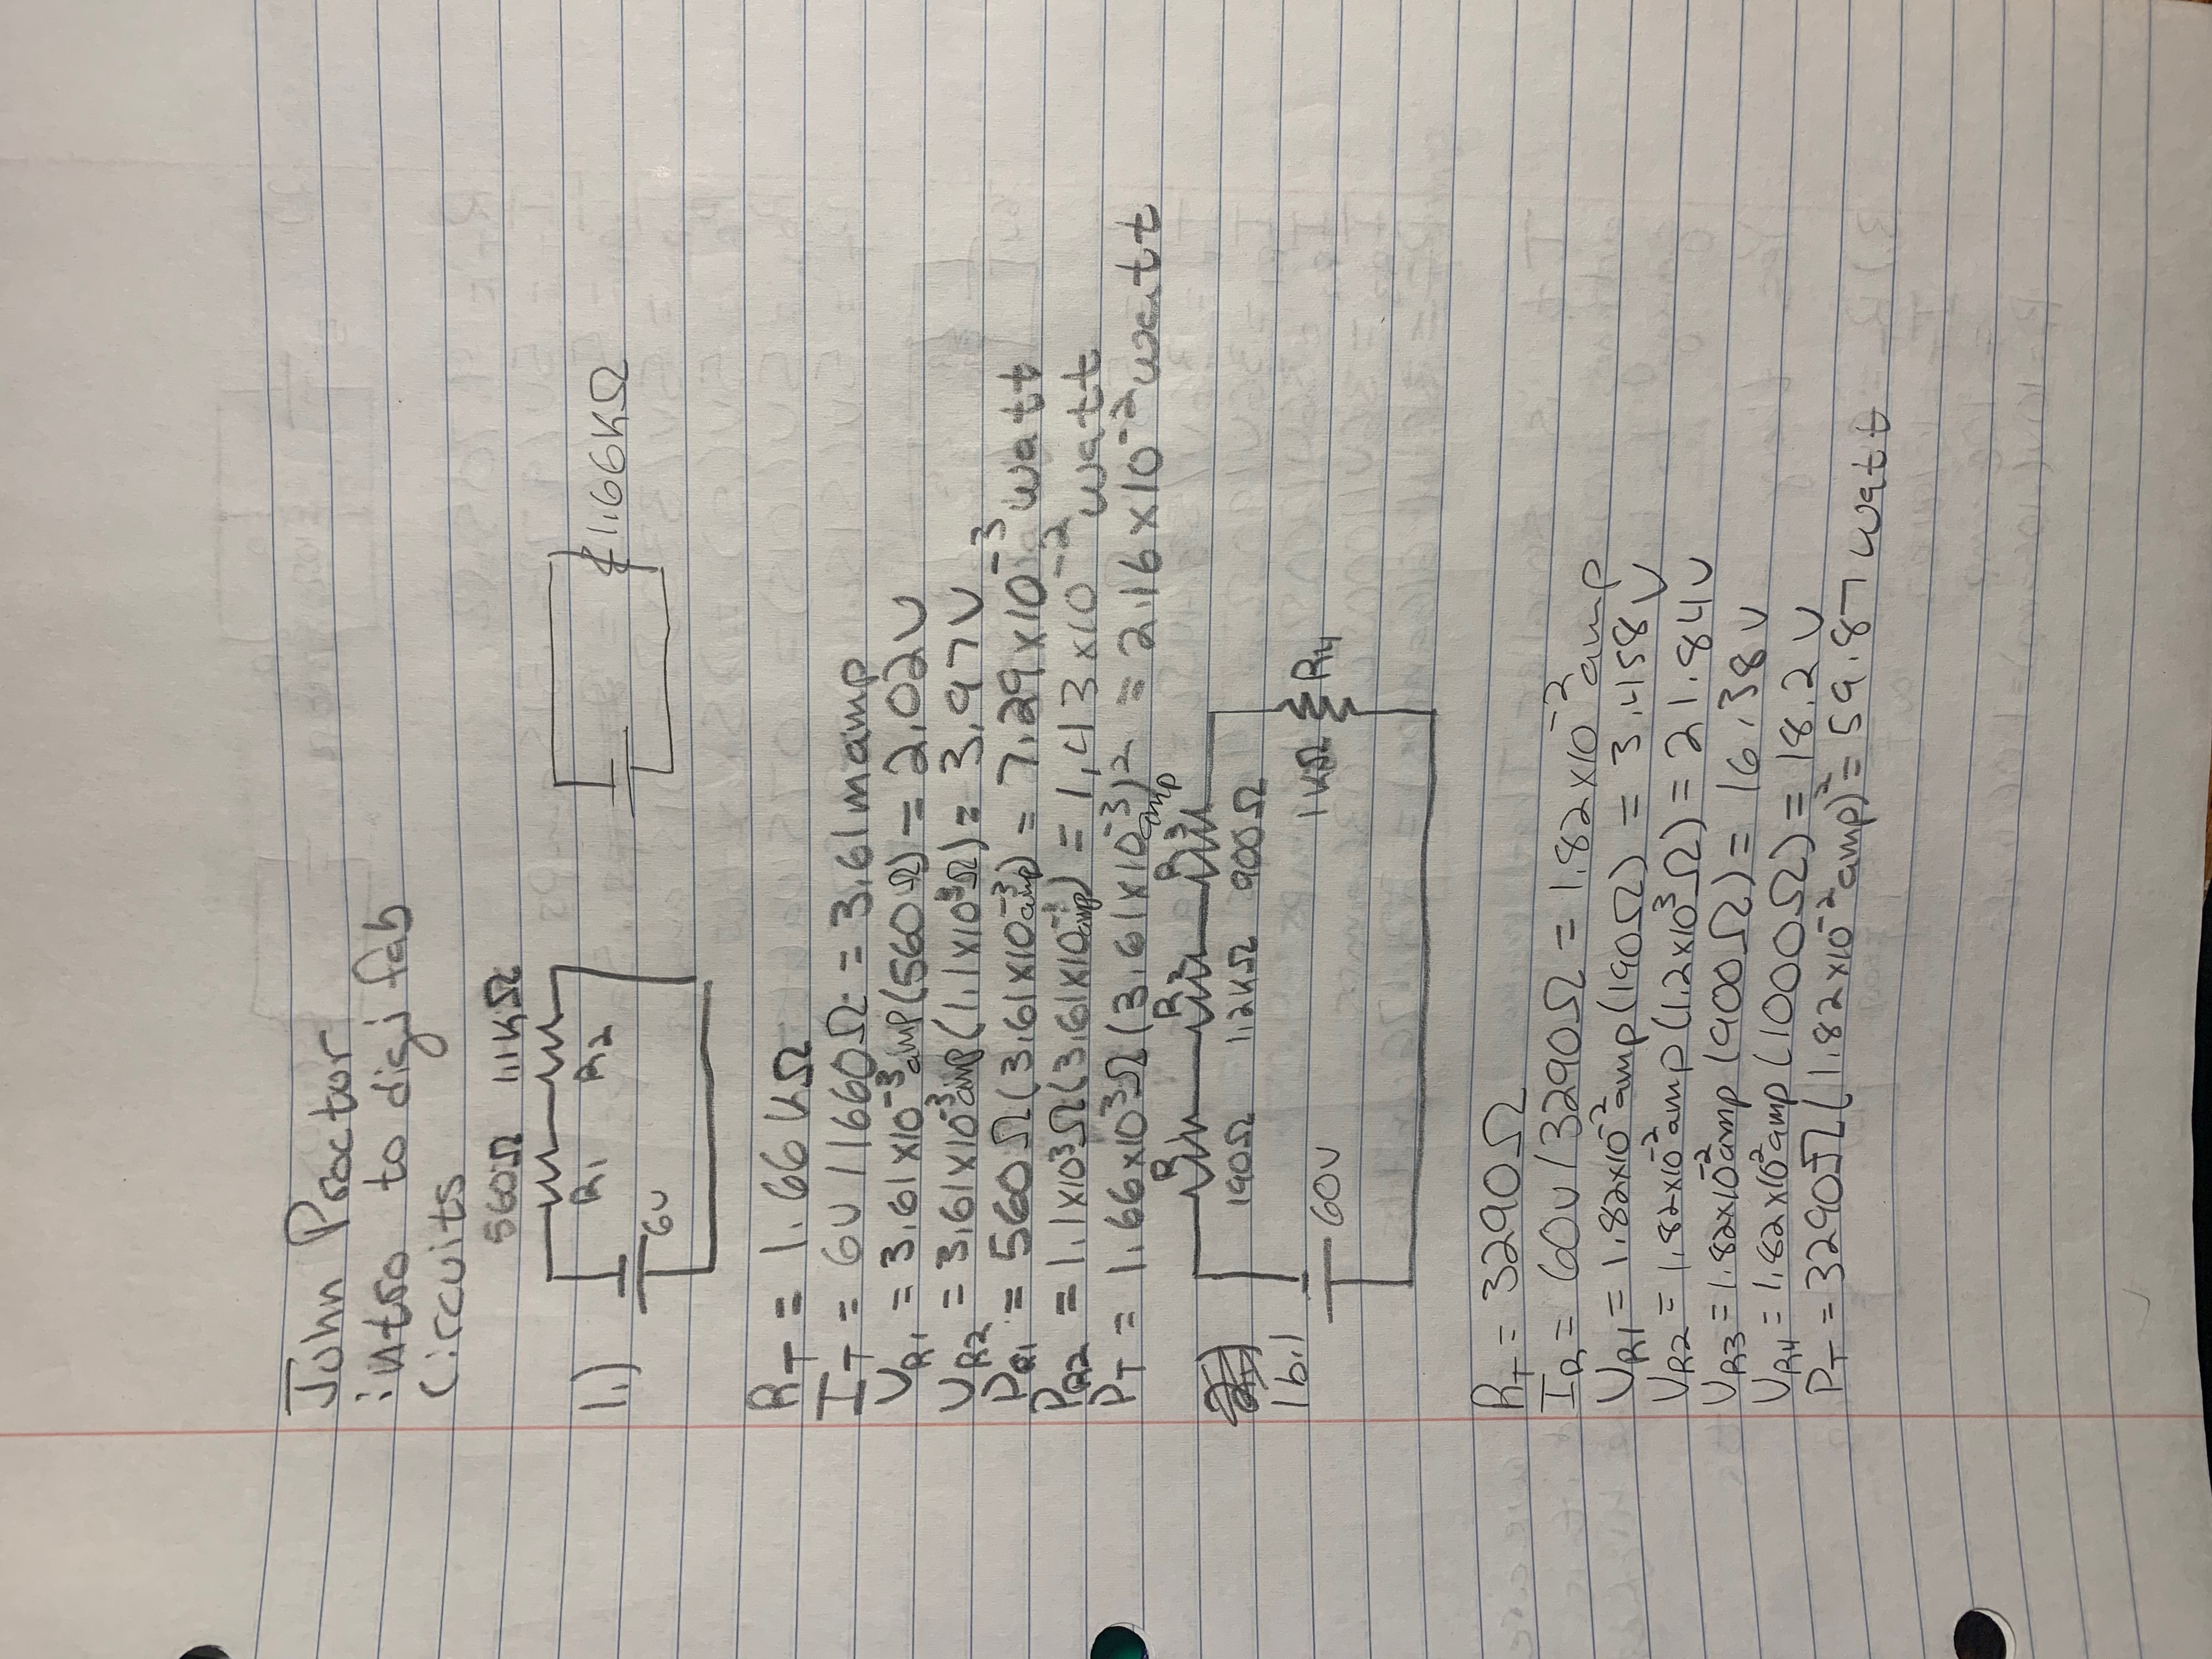 John Proctor
intro to digi fab
Circuits
560Ω 1.1KΩ
R1 R2
1.)
6v
1.66KΩ
RT = 1.66 KΩ
IT = 6v / 1660Ω = 3.61 mamp
VR1 = 3.61x10^-3 amp (560Ω) = 2.02V
VR2 = 3.61x10^-3 amp (1.1x10^3Ω) = 3.97V
PR1 = 560Ω (3.61x10^-3 amp) = 7.29x10^-3 watt
PR2 = 1.1x10^3Ω (3.61x10^-3 amp) = 1.43x10^-2 watt
PT = 1.66x10^3Ω (3.61x10^-3 amp)^2 = 2.16x10^-2 watt
R1 R2 R3
190Ω 1.2KΩ 900Ω
1b.)
60V
1KΩ R4
RT = 3290Ω
IR = 60v / 3290Ω = 1.82x10^-2 amp
VR1 = 1.82x10^-2 amp (190Ω) = 3.458V
VR2 = 1.82x10^-2 amp (1.2x10^3Ω) = 21.84v
VR3 = 1.82x10^-2 amp (900Ω) = 16.38v
VR4 = 1.82x10^2 amp (1000Ω) = 18.2v
PT = 3290Ω (1.82x10^-2 amp)^2 = 59.87 watt